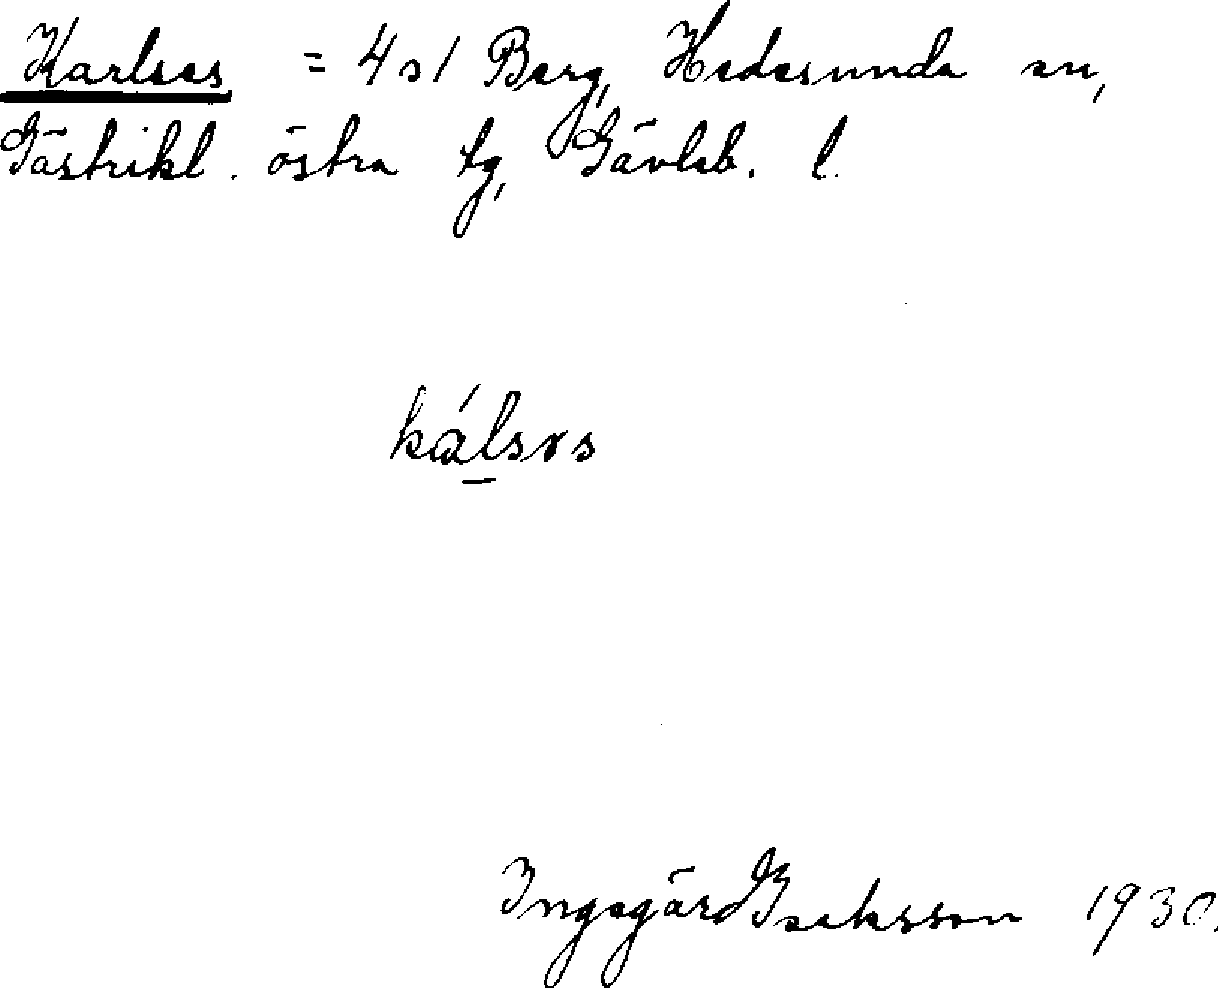 Karlses = 4 s 1 Berg, Hedesunda sn,
Gästrikl. östra tg, Gävleb. l.
kálsɤs
Ingegärd Isaksson 1930.